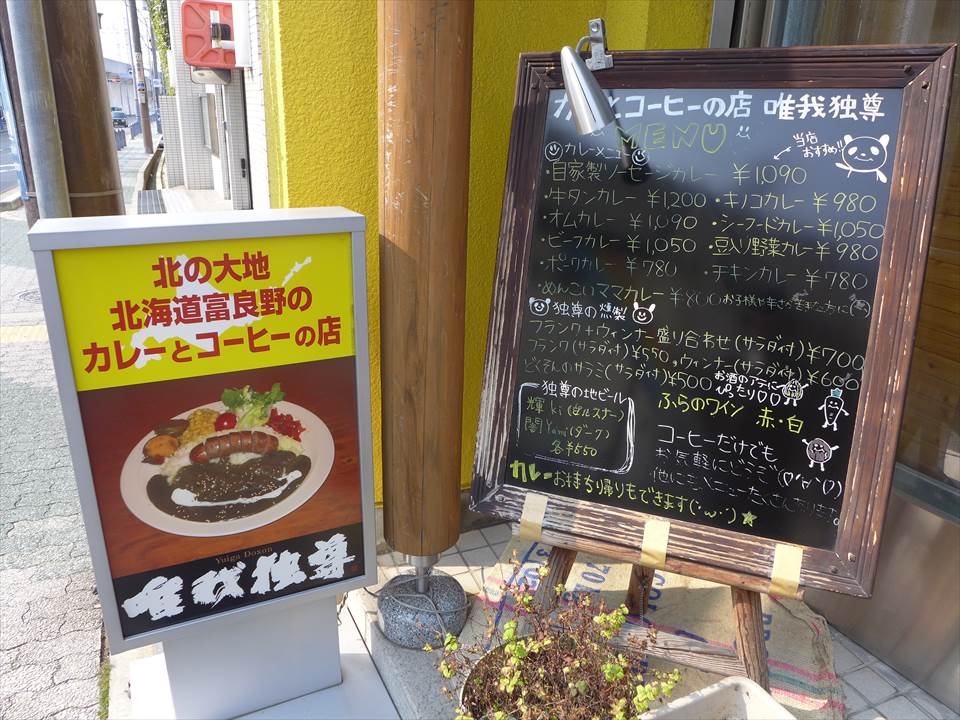 北の大地
北海道富良野の
カレーとコーヒーの店
Yuiga Doxon
唯我独尊
カレーとコーヒーの店 唯我独尊
MENU
当店
おすすめ!!
カレーメニュー
・自家製ソーセージカレー ¥1,090
・牛タンカレー ¥1,200 ・キノコカレー ¥980
・オムカレー ¥1,090 ・シーフードカレー ¥1,050
・ビーフカレー ¥1,050 ・豆入り野菜カレー ¥980
・ポークカレー ¥780 ・チキンカレー ¥780
・めんこいママカレー ¥800 お子様や辛さ苦手な方に
独尊の燻製
フランク+ウィンナー盛り合わせ(サラダ付)¥700
フランク(サラダ付)¥550, ウィンナー(サラダ付)¥600
どくそんのサラミ(サラダ付)¥500
お酒のアテに
ぴったり♡♡
独尊の地ビール
輝 ki (ピルスナー)
闇 Yami (ダーク)
各¥550
ふらのワイン 赤・白
コーヒーだけでも
お気軽にどうぞ
他にもメニューたくさんあります。
カレーお持ち帰りもできます(・ω・)☆